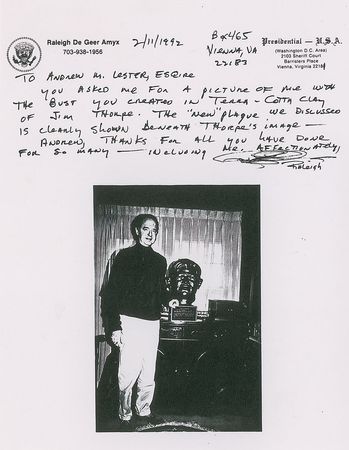 Raleigh De Geer Amyx
703-938-1956
2/11/1992
Box 465
Vienna, VA
22183
Presidential - U.S.A.
(Washington D.C. Area)
2103 Sheriff Court
Barristers Place
Vienna, Virginia 22181
To Andrew M. Lester, Esqire
You asked me for a picture of me with
the bust you created in Terra-Cotta clay
of Jim Thorpe. The "new" plaque we discussed
is clearly shown beneath Thorpe's image —
Andrew, thanks for all you have done
for so many — including me. Affectionately,
Raleigh